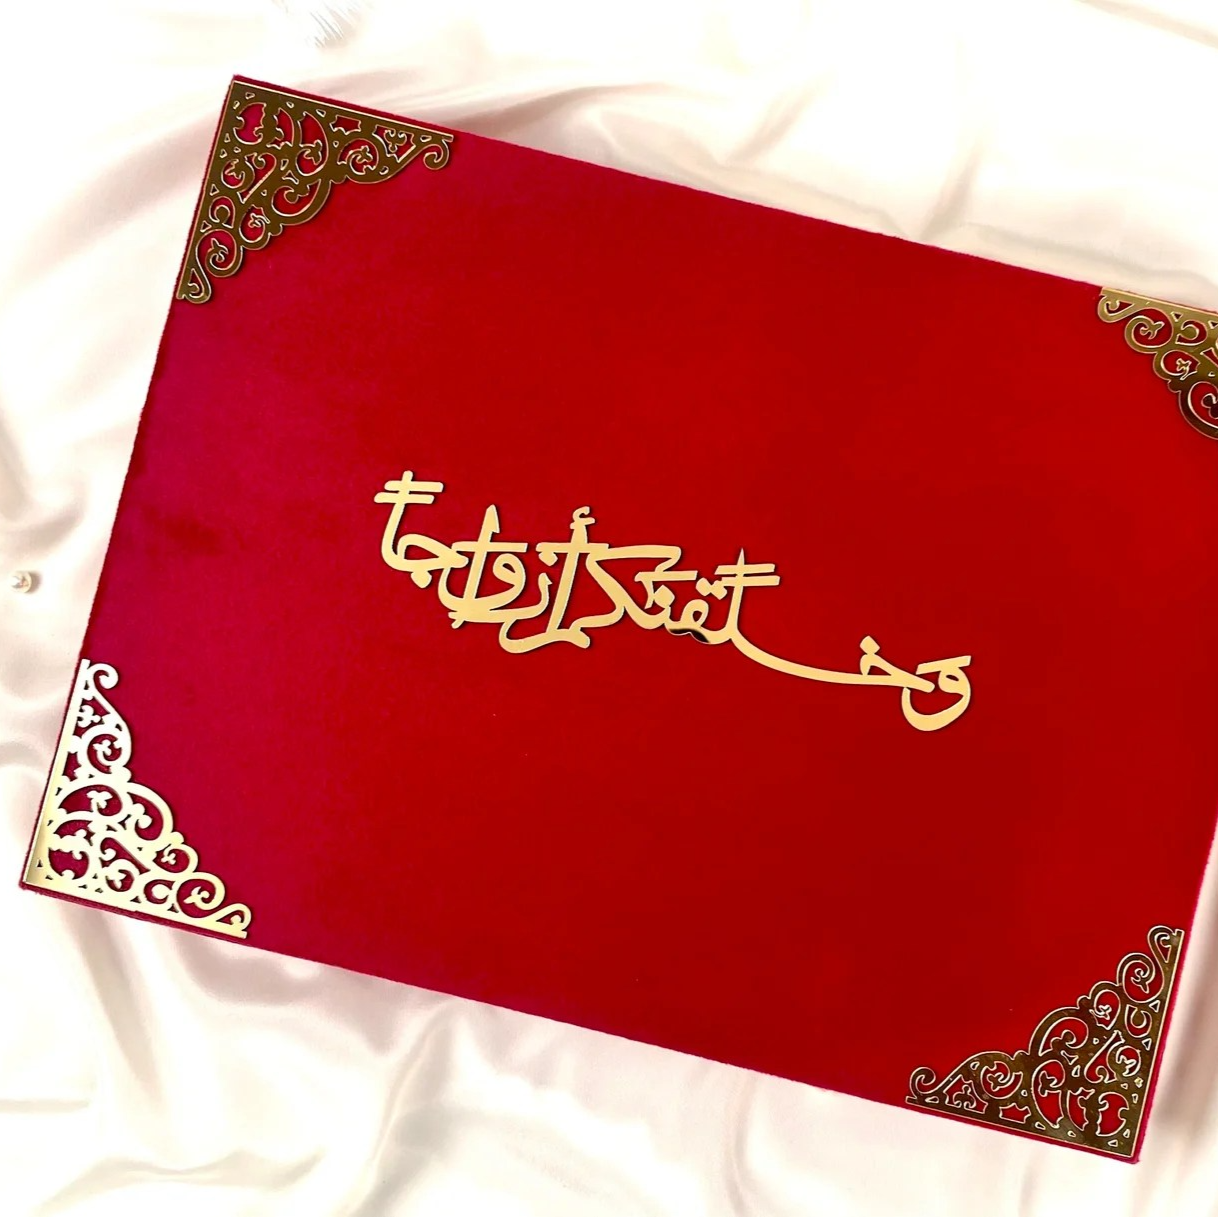 وَخَلَقْنَٰكُمْ أَزْوَاجًا